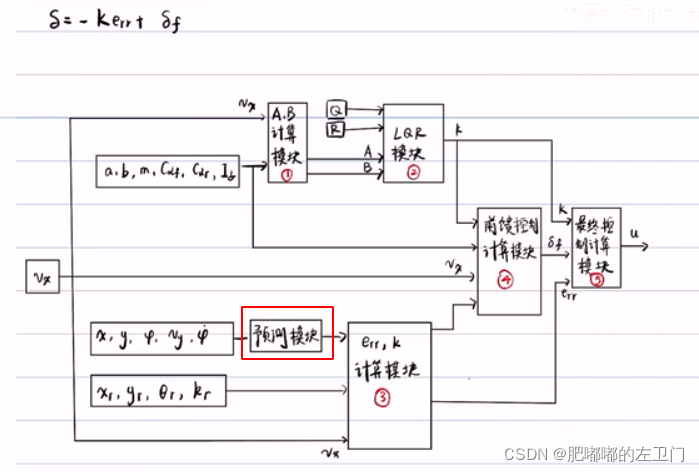 δ = - k err + δf
vx
A.B
计算
模块
①
Q
R
A
B
LQR
模块
②
k
a, b, m, Cαf, Cαr, Iz
前馈控制
计算模块
④
k
最终控
制计算
模块
⑤
u
δf
err
vx
vx
x, y, φ, vy, φ̇
预测模块
err, k
计算模块
③
xr, yr, θr, kr
vx
CSDN @肥嘟嘟的左卫门